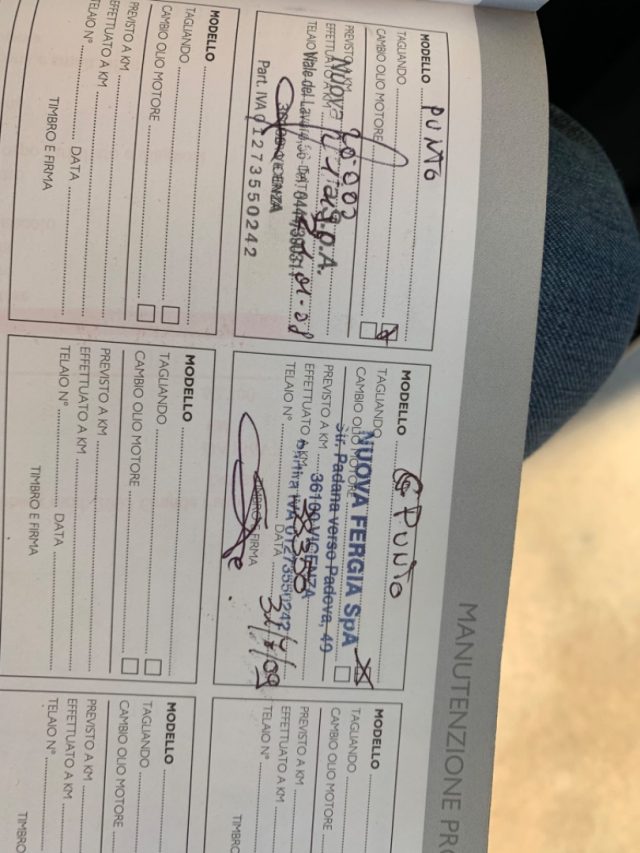 MANUTENZIONE PRO
MODELLO PUNTO
TAGLIANDO
CAMBIO OLIO MOTORE
PREVISTO A KM
EFFETTUATO A KM
TELAIO
Part. IVA 01273550242
MODELLO G PUNTO
TAGLIANDO
CAMBIO OLIO MOTORE
NUOVA FERGIA SpA
Str. Padana verso Padova, 49
PREVISTO A KM
36100 VICENZA
EFFETTUATO A KM
Partita IVA 01273550242
TELAIO N° DATA 31/7/09
TIMBRO E FIRMA
MODELLO
TAGLIANDO
CAMBIO OLIO MOTORE
PREVISTO A KM
EFFETTUATO A KM
TELAIO N°
TIMBRO
MODELLO
TAGLIANDO
CAMBIO OLIO MOTORE
PREVISTO A KM
EFFETTUATO A KM
TELAIO N° DATA
TIMBRO E FIRMA
MODELLO
TAGLIANDO
CAMBIO OLIO MOTORE
PREVISTO A KM
EFFETTUATO A KM
TELAIO N° DATA
TIMBRO E FIRMA
MODELLO
TAGLIANDO
CAMBIO OLIO MOTORE
PREVISTO A KM
EFFETTUATO A KM
TELAIO N°
TIMBRO